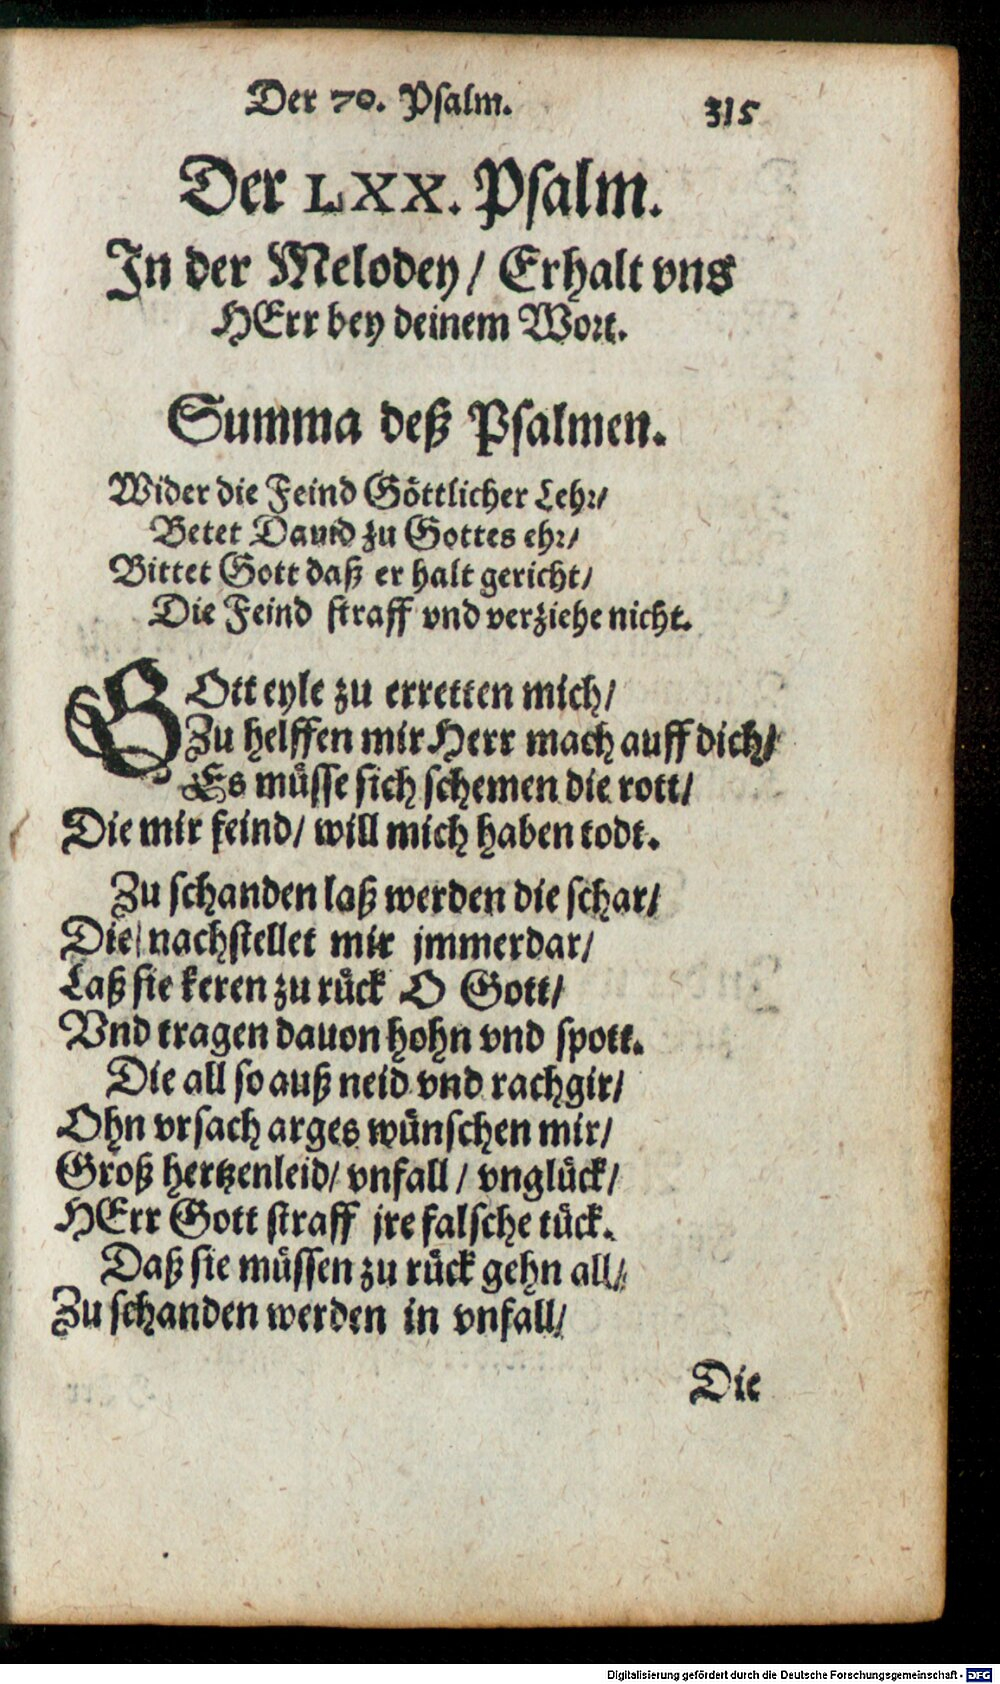 Der 70. Psalm. 315
Der LXX. Psalm.
In der Melodey/ Erhalt vns
HErr bey deinem Wort.
Summa deß Psalmen.
Wider die Feind Göttlicher Lehr/
Betet Dauid zu Gottes ehr/
Bittet Gott daß er halt gericht/
Die Feind straff vnd verziehe nicht.
GOtt eyle zu erretten mich/
Zu helffen mir Herr mach auff dich/
Es müsse sich schemen die rott/
Die mir feind/ will mich haben todt.
Zu schanden laß werden die schar/
Die nachstellet mir jmmerdar/
Laß sie keren zu rück O Gott/
Vnd tragen dauon hohn vnd spott.
Die all so auß neid vnd rachgir/
Ohn vrsach arges wünschen mir/
Groß hertzenleid/ vnfall/ vnglück/
HErr Gott straff jre falsche tück.
Daß sie müssen zu rück gehn all/
Zu schanden werden in vnfall/
Die
Digitalisierung gefördert durch die Deutsche Forschungsgemeinschaft - DFG